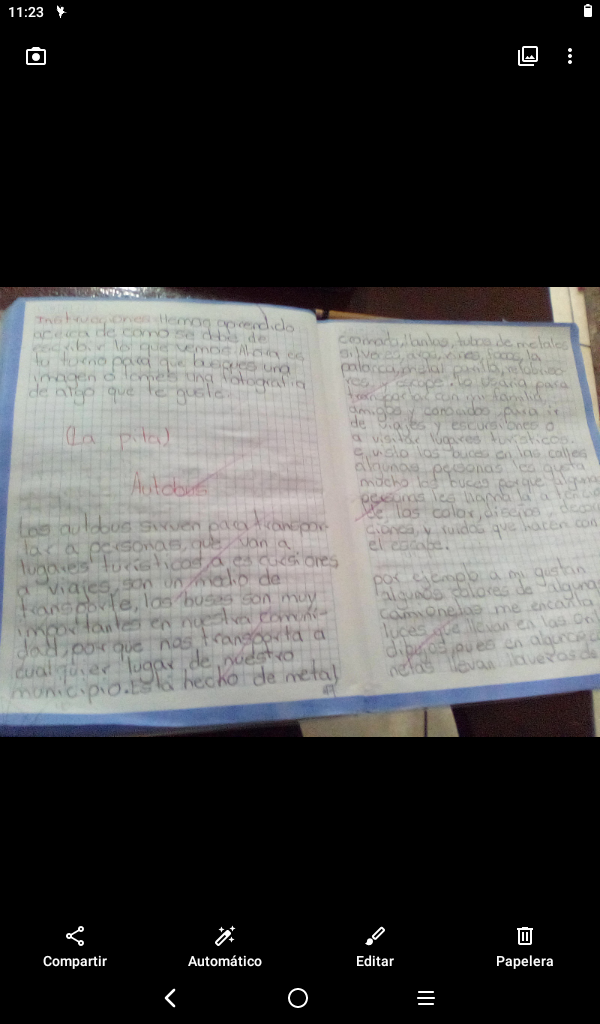 11:23
Instrucciones: Hemos aprendido
acerca de como se debe de
escribir lo que vemos Ahora es
tu turno para que busques una
imagen o tomes una fotografia
de algo que te guste.
(La pita)
Autobus
Los autobus sirven para transpor-
tar a personas, que van a
lugares turísticos a escursiones
a viajes, son un medio de
transporte, los buses son muy
importantes en nuestra comuni-
dad, por que nos transporta a
cualquier lugar de nuestro
municipio. Está hecho de metal
cromado, llantas, tubos de metales
la
palanca, parrilla,
escape. lo usaria para
transportar con mi familia
amigos y conocidos para ir
de viajes y escursiones o
a visitar lugares turísticos.
e visto los buces en las calles
algunas personas les gusta
mucho los buces porque alguna
personas les llama la atencio
de los color, diseños, decora
ciones, y ruidos que hacen con
el escape.
por ejemplo a mi gustan
algunos colores de algunas
camionetas me encanta
luces que llevan en las
dibujos, pues en algunas
netas llevan llaveros de
Compartir
Automático
Editar
Papelera